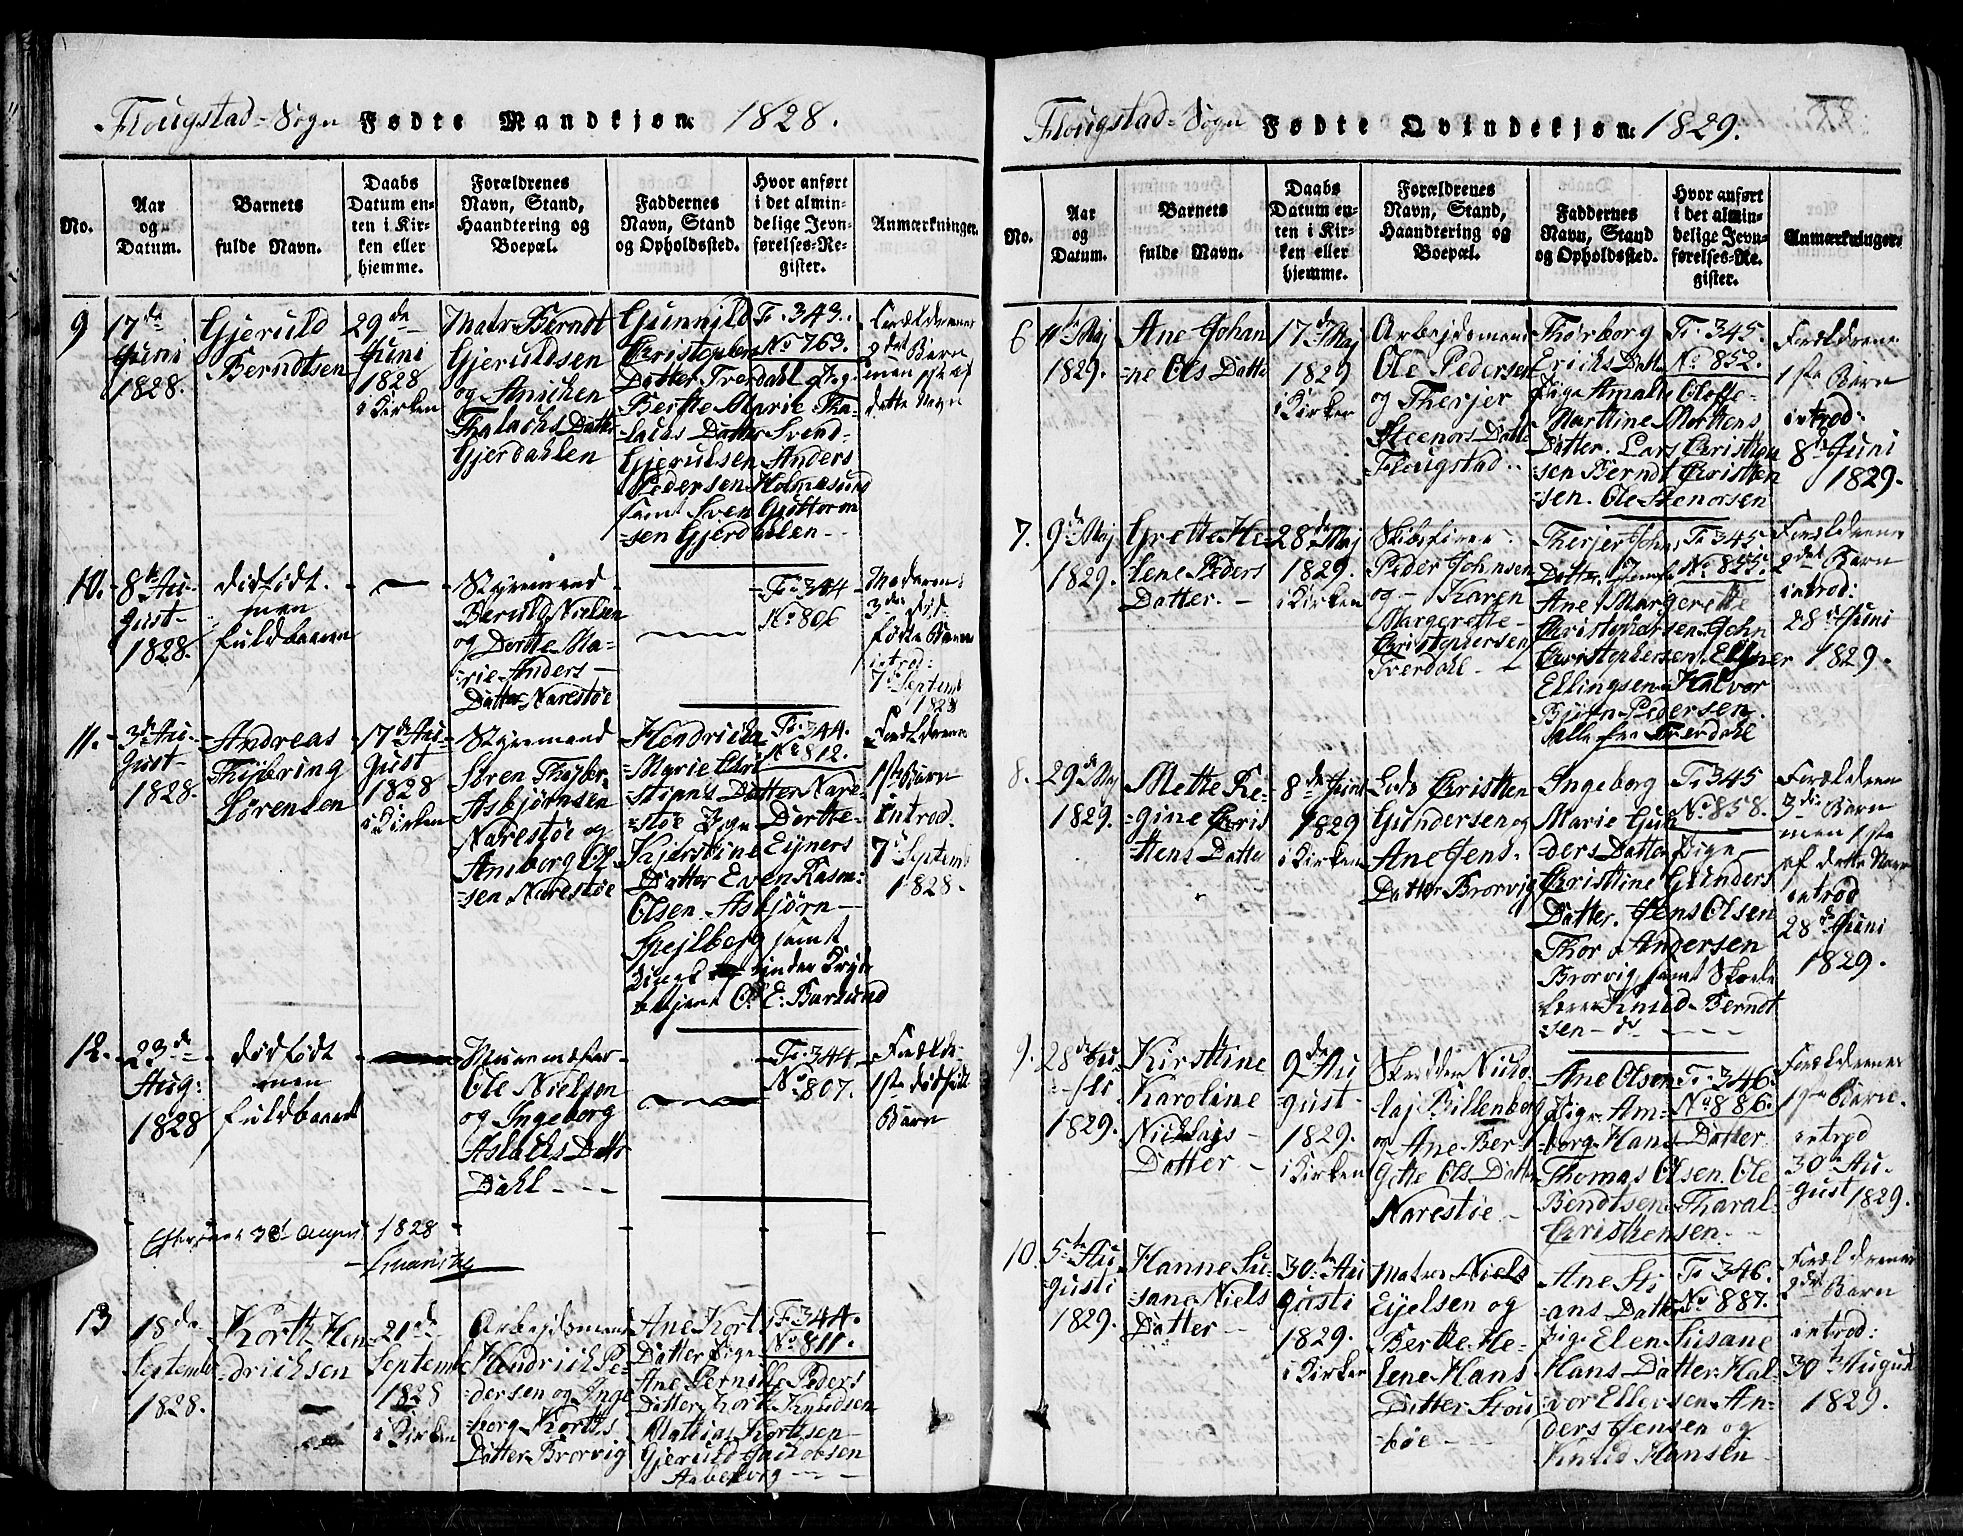 Flougstad-Sogn Fødte Mandkjøn 1828.
No.
Aar
og
Datum.
Barnets
fulde Navn.
Daabs
Datum en-
ten i Kir-
ken eller
hjemme.
Forældrenes
Navn, Stand,
Haandtering og
Boepæl.
Faddernes
Navn, Stand
og Opholdssted.
Hvor anført
i det almin-
delige Jevn-
førelses-Re-
gister.
Anmærkninger.
9
17de
Juni
1828.
Gjeruld
Berndtsen
29de
Juni
1828
i Kirken
Matr. Berndt
Gjeruldsen
og Anichen
Thalachs Datter
Gjerdahlen
Gunnild
Christophers
Datter Tverdahl
Berthe Marie Tha-
lachs Datter Svend
Gjerulsen Anders
Pedersen Holmesund
samt Sven Guttorm
-sen Gjerdahlen
Fr. 343.
No 763.
Forældrenes
2det Barn
men 1ste af
dette Navn
10.
8de Au-
gust
1828.
dødfødt
men
fuldbaaren
Styremand
Beruld Nielsen
og Dorthe Ma-
rie Anders
Datter Narestøe
Fr. 344
No 806
Moderens
3die død-
fødte Barn
introd:
7de Septemb
1828
11.
3de Au-
gust
1828.
Andreas
Thybring
Sørensen
17de Au-
gust
1828
i Kirken
Styremand
Søren Thybr.
Asbjørnsen
Narestøe og
Amborg Ol-
sen Narestøe
Hendricha
Marie Chri
stians Datter Nare-
støe Pige Dorthe
Kjerstine Eyners
Datter Even Rasm-
Olsen. Asbjørn
Spejlberg samt
E. Barsund
Fr. 344.
No 812.
Forældrenes
1ste Barn
introd.
7de Septemb
1828.
12.
23de
Aug:
1828
dødfødt
men
fuldbaaren
Muurmester
Ole Nielsen
og Ingeborg
Aslachs Datt
Dahl
Fr. 344.
No 807.
Foræld-
1ste dødfødt
Barn
1828
13
18de
September
1828.
Korth Hen
drichsen
21de
Septembe
1828
i Kirken
Arbejdsmand
Hendrich Pe-
dersen og Inge
borg Korths
Datter Brorvig
Ane Kort
Datter Pige
Ane Pernille Peders
Datter, Korth Knudsen
Mathias Korthsen
Gjeruld Jacobsen
Fr. 344.
No 811.
Flougstad-Sogn Fødte Qvindekjøn 1829.
No.
Aar
og
Datum.
Barnets
fulde Navn.
Daabs
Datum en-
ten i Kir-
ken eller
hjemme.
Forældrenes
Navn, Stand,
Haandtering og
Boepæl.
Faddernes
Navn, Stand
og Opholdssted.
Hvor anført
i det almin-
delige Jevn-
førelses-Re-
gister.
Anmærkninger.
6
Maj
1829.
Ane Johan
ne Ols Datte
17de Maj
1829
i Kirken
Arbejdsmand
Ole Pedersen
og Therjer
Steenors Datt
Flougstad.
Thorborg
Erichs Datt
Pige Amalie Oloffe
Marthine Mortens
Datter. Lars Christian
sen Berndt Christen
sen. Ole Stenorsen
Fr. 345.
No 852.
Forældrene
1ste Barn
introd:
8de Juni
1829.
7.
9de Maj
1829.
Grette He-
lene Peders
Datter.
28de Maj
1829.
i Kirken
Skibsfører
Peder Johnsen
og Karen
Margrette
Christophersen
Tverdahl.
Therjer Johns
Datter
Ane Margrette
Christophersen John
Christophersen. Ellever
Ellingsen Halvor
Bjørn Pedersen.
Alle fra Tverdahl
Fr. 345
No 855.
Forældrene
2det Barn
introd:
28de Juni
1829.
8.
29de Maj
1829.
Mette Re-
gine Chris
tens Datter
8de Juni
1829
i Kirken
Lods Christen
Gundersen og
Ane Jens.
Datter Brorvig
Ingeborg
Marie Gun
ders Datter Pige
Christine Gunders
Datter. Jens Olsen
Thor Andersen
Brorvig samt Skole
lærer Knud Berndt
sen
Fr. 345
No 858.
Forældrene
3die Barn
men 1ste
af dette Navn
introd
28de Juni
1829.
9.
1829.
Kirstine
Karoline
Nicklajs
Datter
9de Au
gust
1829.
i Kirken
Skrædder Nico
laj Billenberg
og Ane Ber-
gette Ols Datter
Narestøe
Ane Olsen
Pige. Am-
borg Hans Datter
Thomas Olsen. Ole
Bendtsen. Tharal-
Christensen.
Fr. 346.
No 886.
Forældrenes
1ste Barn.
introd
30te Au-
gust 1829.
10.
5te Au
gusti
1829.
Hanne Su-
sane Niels
Datter
30te Au
gusti
1829.
i Kirken
Matros Niels
Eyelsen og
Berthe He-
lene Hans
Datter Stou
bøe
Ane Sti
ans Datter
Pige Elen Susane
Hans Datter. Hal-
vor Ellevsen An-
ders Jensen og
Knud Hansen
Fr. 346.
No 887.
Forældrenes
2det Barn
introd:
30te August
1829.